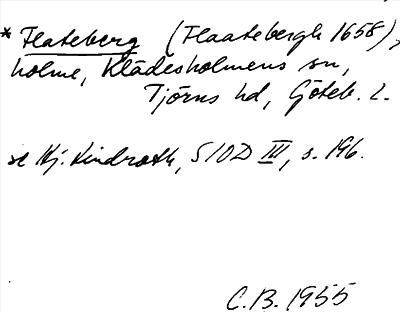 * Flateberg (Flaatebergh 1658),
holme, Klädesholmens sn,
Tjörns hd, Göteb. l.
se Hj. Lindroth, SIOD III, s. 196.
C.B. 1955